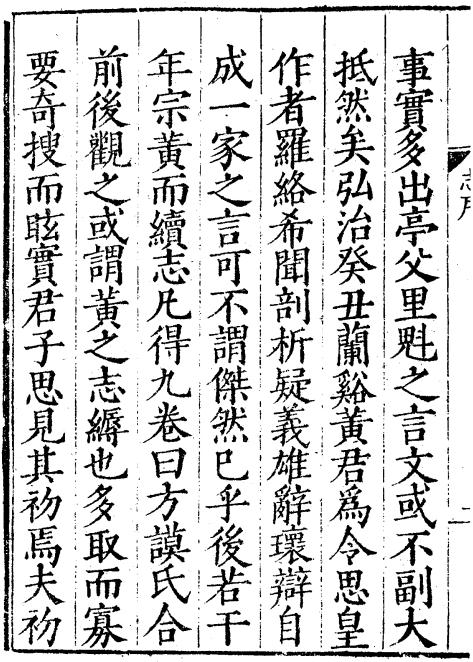 志序
二
事實多出亭父里魁之言文或不副大
抵然矣弘治癸丑蘭谿黃君爲令思皇
作者羅絡希聞剖析疑義雄辭瓌辯自
成一家之言可不謂傑然已乎後若干
年宗黃而續志凡得九卷曰方謨氏合
前後觀之或謂黃之志縟也多取而寡
要奇搜而眩實君子思見其初焉夫初